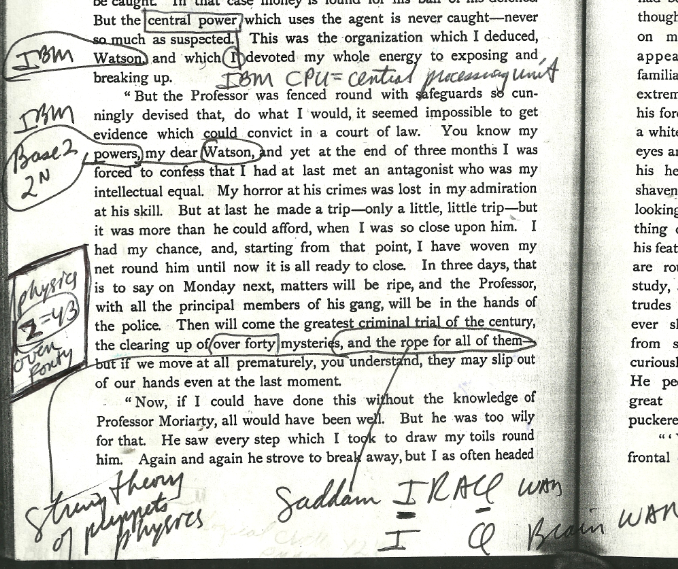 be caught. In that case money is found for his bail or his defence.
But the central power which uses the agent is never caught—never
so much as suspected. This was the organization which I deduced,
IBM
Watson, and which I devoted my whole energy to exposing and
breaking up.
IBM CPU = central processing unit
“But the Professor was fenced round with safeguards so cun-
ningly devised that, do what I would, it seemed impossible to get
IBM
evidence which could convict in a court of law. You know my
Base 2
2N
powers, my dear Watson, and yet at the end of three months I was
forced to confess that I had at last met an antagonist who was my
intellectual equal. My horror at his crimes was lost in my admiration
at his skill. But at last he made a trip—only a little, little trip—but
it was more than he could afford, when I was so close upon him. I
had my chance, and, starting from that point, I have woven my
net round him until now it is all ready to close. In three days, that
is to say on Monday next, matters will be ripe, and the Professor,
with all the principal members of his gang, will be in the hands of
the police. Then will come the greatest criminal trial of the century,
physics
Z=43
over
forty
the clearing up of over forty mysteries, and the rope for all of them—
but if we move at all prematurely, you understand, they may slip out
of our hands even at the last moment.
“Now, if I could have done this without the knowledge of
Professor Moriarty, all would have been well. But he was too wily
for that. He saw every step which I took to draw my toils round
him. Again and again he strove to break away, but I as often headed
String theory
of puppets
physics
Saddam IRAQ WAR
I Q Brain WAR
though
on m
appea
familia
extrem
his for
a white
eyes a
his he
shaven
looking
thing
his feat
are rou
study,
trudes
ever s
from s
curiousl
He pe
great
puckere
“‘
frontal